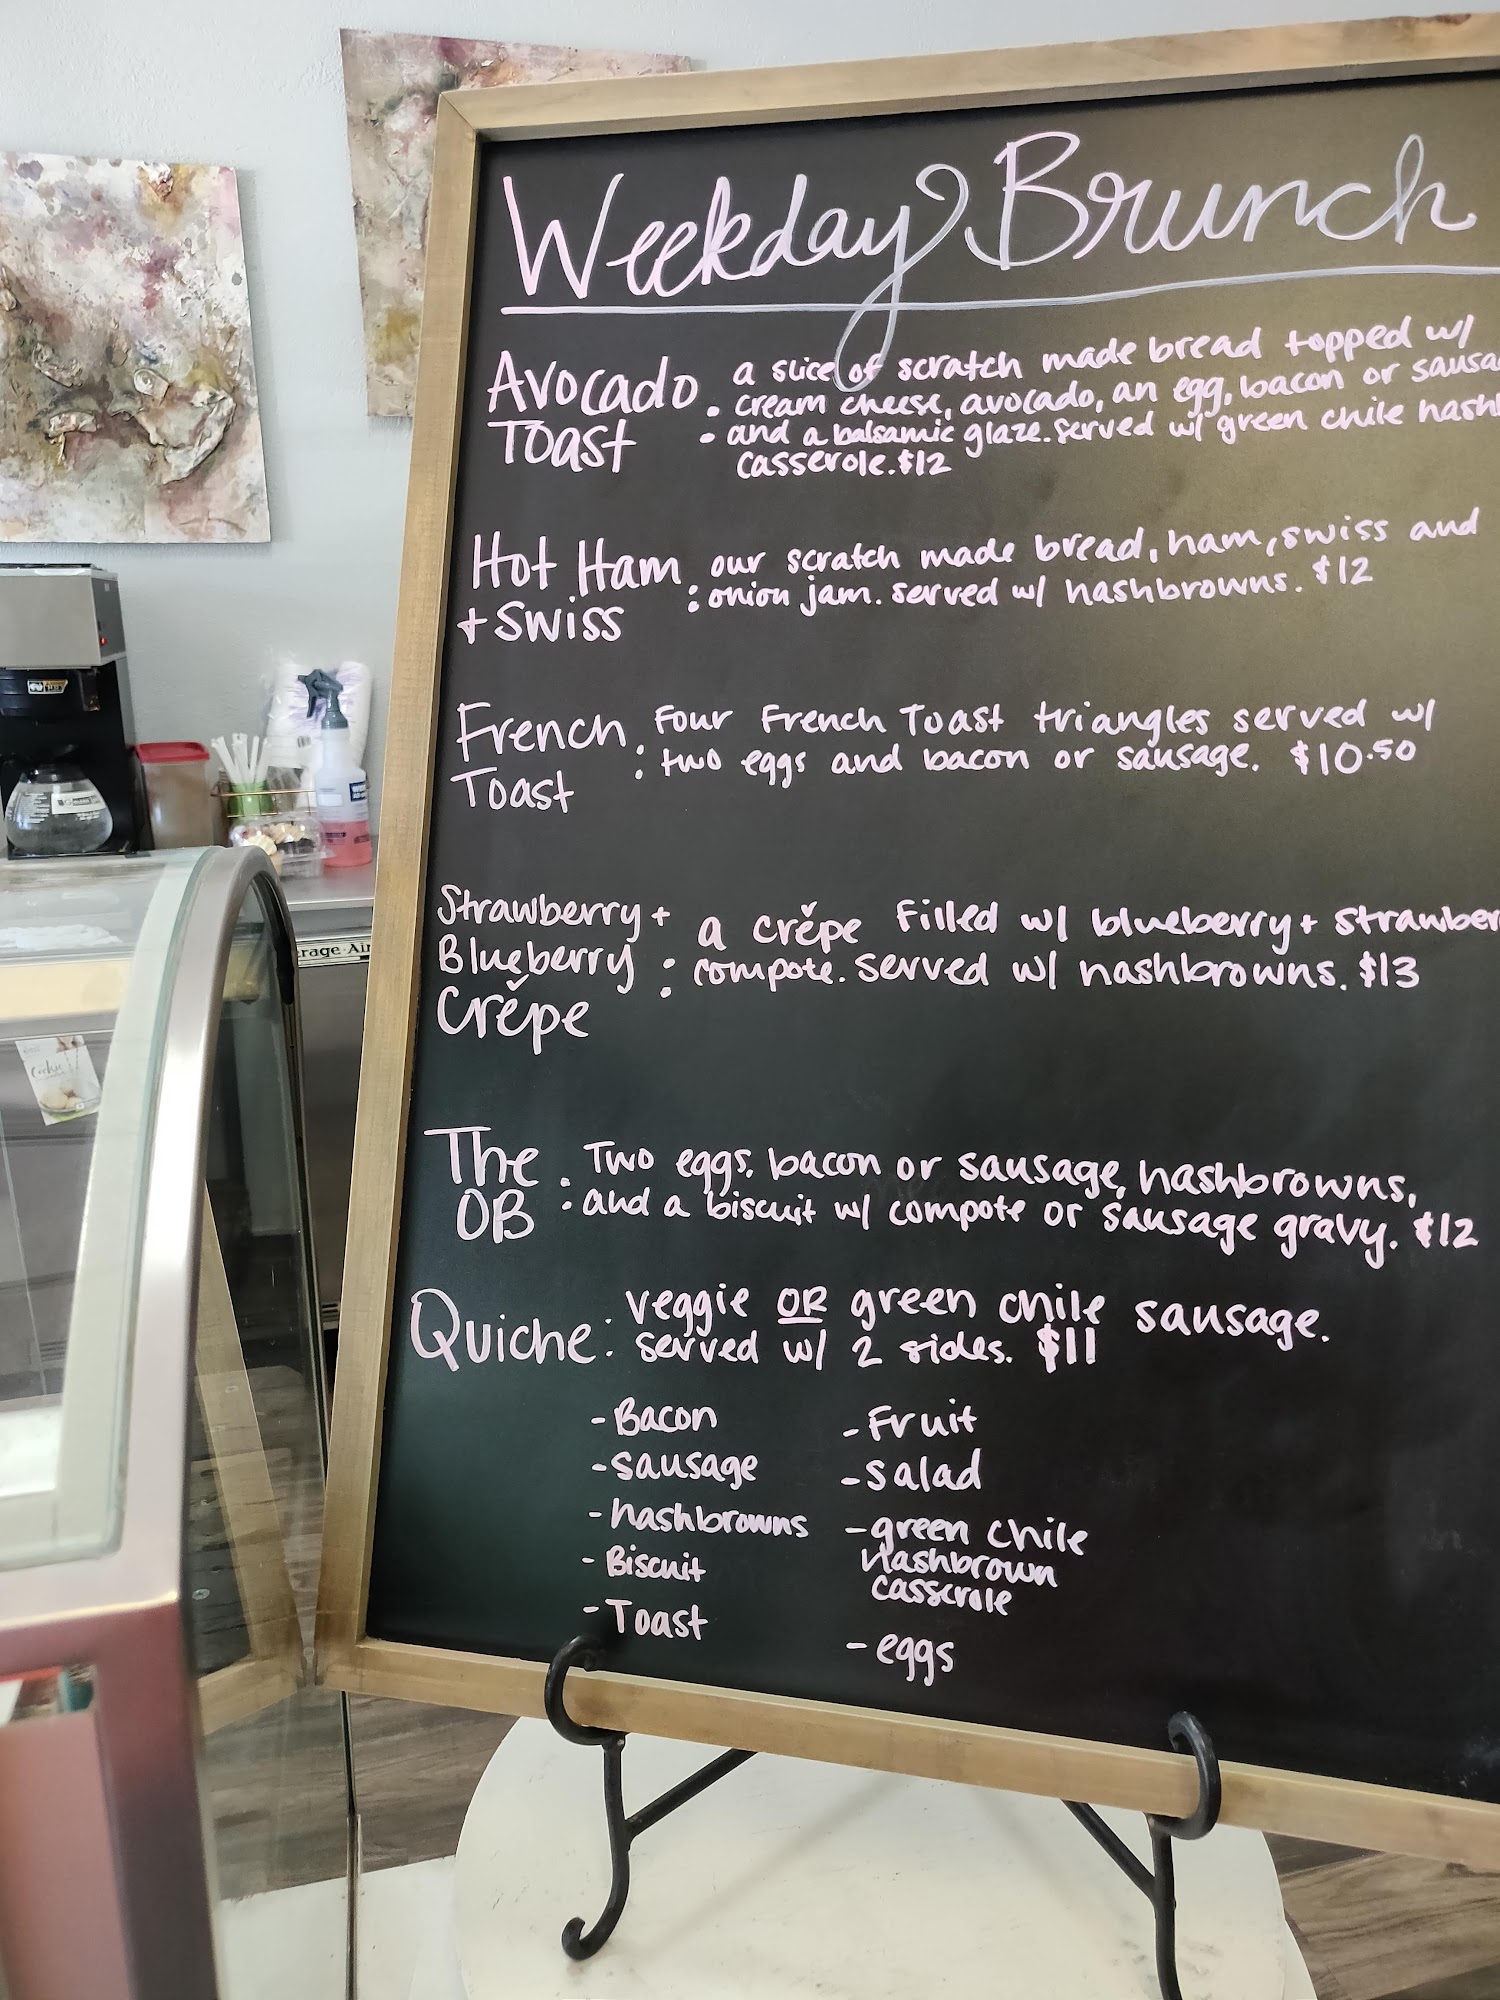 Weekday Brunch
Avocado Toast : a slice of scratch made bread topped w/
cream cheese, avocado, an egg, bacon or
and a balsamic glaze. served w/ green chile
casserole. $12
Hot Ham + Swiss : our scratch made bread, ham, swiss and
onion jam. served w/ hashbrowns. $12
French Toast : Four French Toast triangles served w/
two eggs and bacon or sausage. $10.50
Strawberry + Blueberry Crěpe : a crěpe filled w/ blueberry +
compote. served w/ hashbrowns. $13
The OB : Two eggs, bacon or sausage, hashbrowns,
and a biscuit w/ compote or sausage gravy. $12
Quiche : veggie OR green chile sausage.
served w/ 2 sides. $11
- Bacon
- Sausage
- hashbrowns
- Biscuit
- Toast
- Fruit
- Salad
- green chile
Hashbrown
casserole
- eggs